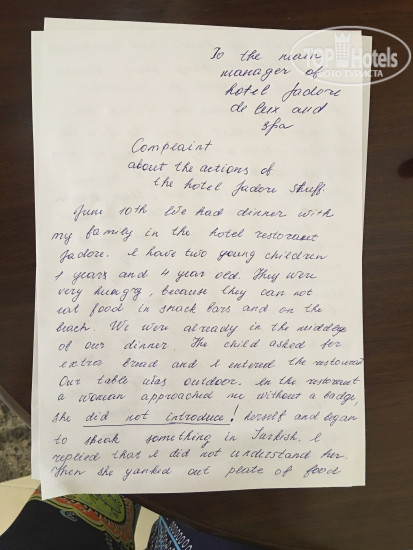 TopHotels
ФОТО ТУРИСТА
To the main
manager of
hotel Jadore
de lux and
spa
Complaint
about the actions of
the hotel Jadore stuff.
June 10th We had dinner with
my family in the hotel restorant
Jadore. I have two young children
1 years and 4 year old. They were
very hungry, because they can not
eat food in snack bars and on the
beach. We were already in the middle
of our dinner. The child asked for
extra bread and I entered the restourant
Our table was outdoor. In the restorant
a woman approached me without a badge,
she did not introduce! herself and began
to speak something in Turkish. I
replied that I did not understand her.
Then she yanked out plate of food